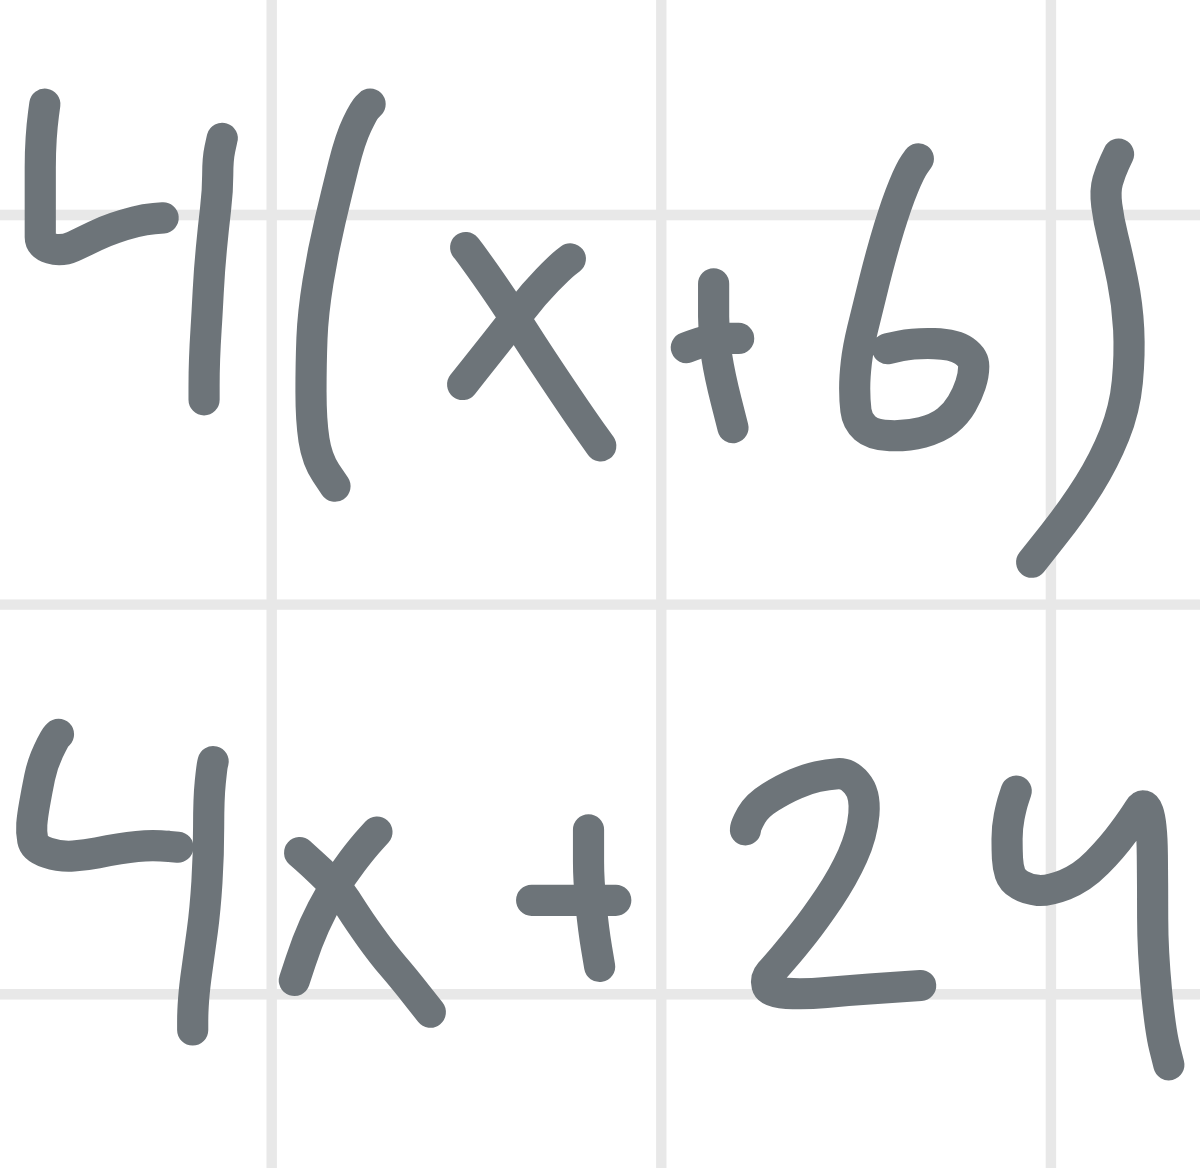 4(x+6)
4x + 24